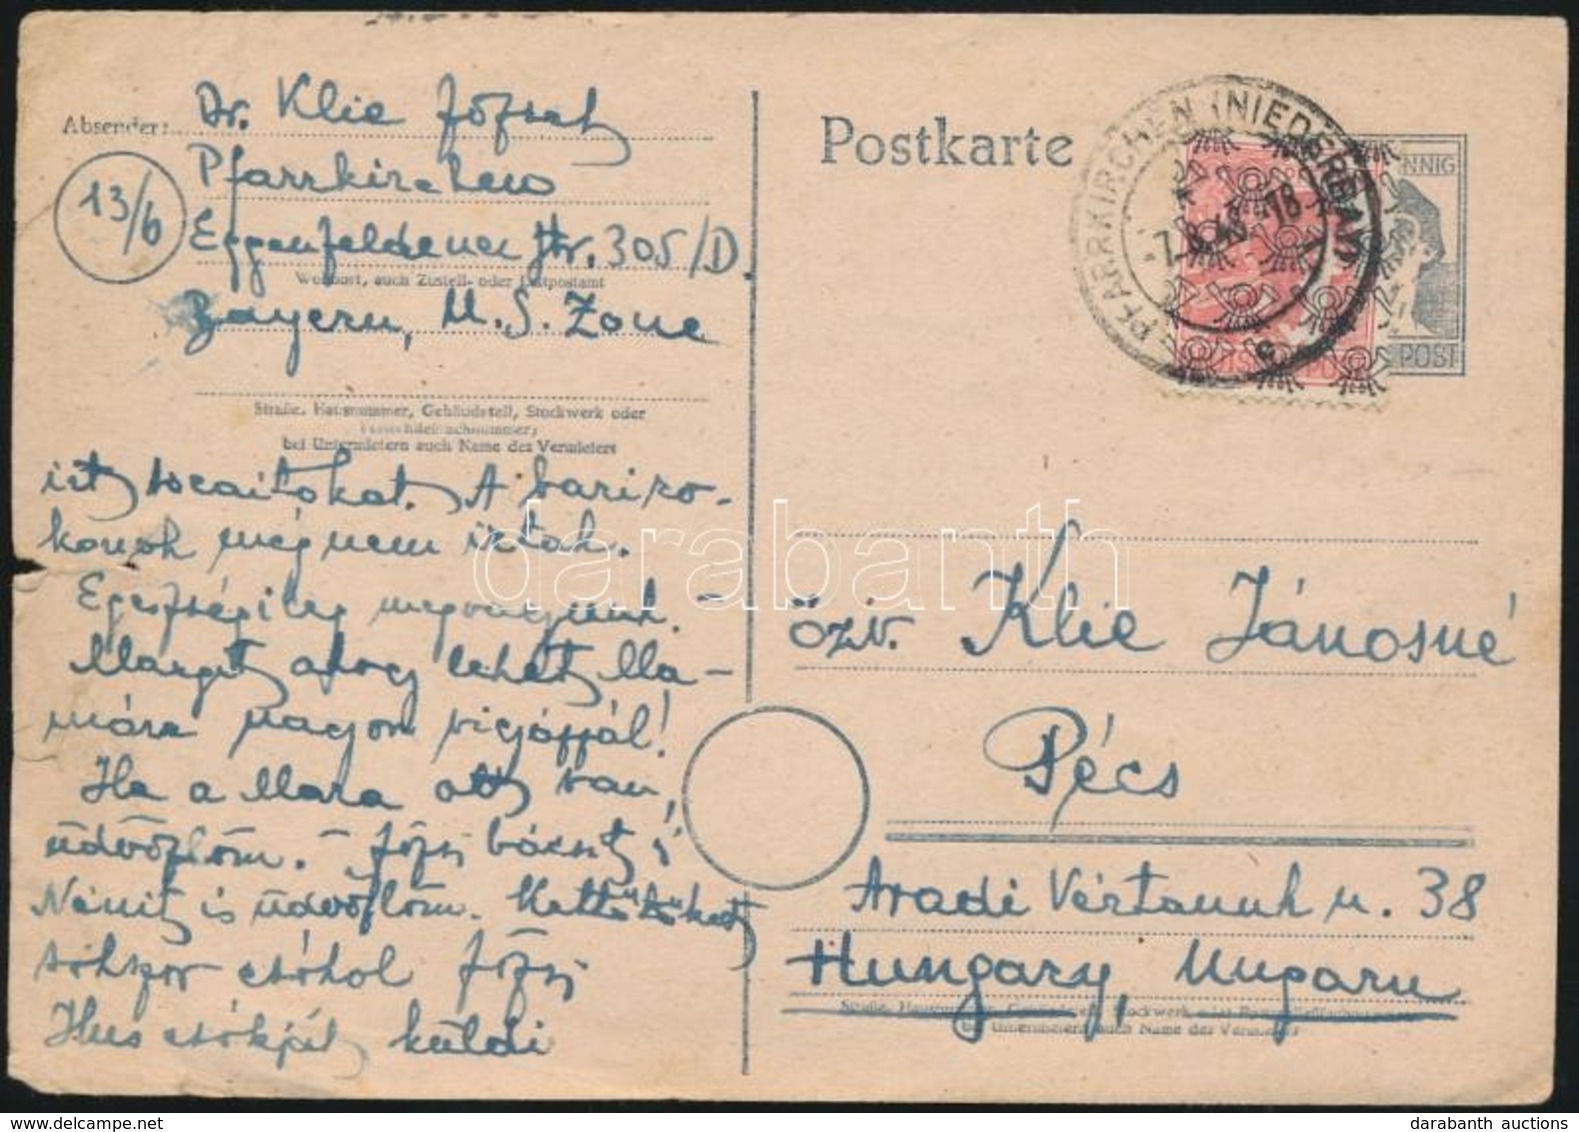 Absender: Dr. Klie József
Pfarrkirchen
13/b
Eggenfeldener Str. 305/D.
Wohnort, auch Zustell- oder Leitpostamt
Bayern, U.S. Zone
Straße, Hausnummer, Gebäudeteil, Stockwerk oder
bei Untermietern auch Name des Vermieters
Postkarte
PFARRKIRCHEN (NIEDERBAY)
-7. 8.48.-18
PFENNIG
POST
írt sócaitokat. A bariro-
konok még nem írtak.
Egészségileg megvagyunk. –
Margit ahogy lehet Ma-
mára nagyon vigyázzál!
Ha a Mara ott van,
üdvözlöm. – Józsi bácsit,
Nénit is üdvözlöm. Kettőtöket
sokszor csókol Józsi
Hus csókját küldi
özv. Klie Jánosné
Pécs
Aradi Vértanuk u. 38
Hungary, Ungarn
Straße, Hausnummer, Gebäudeteil, Stockwerk oder Postschließfachnummer;
bei Untermietern auch Name des Vermieters
darabanth
darabanth auctions